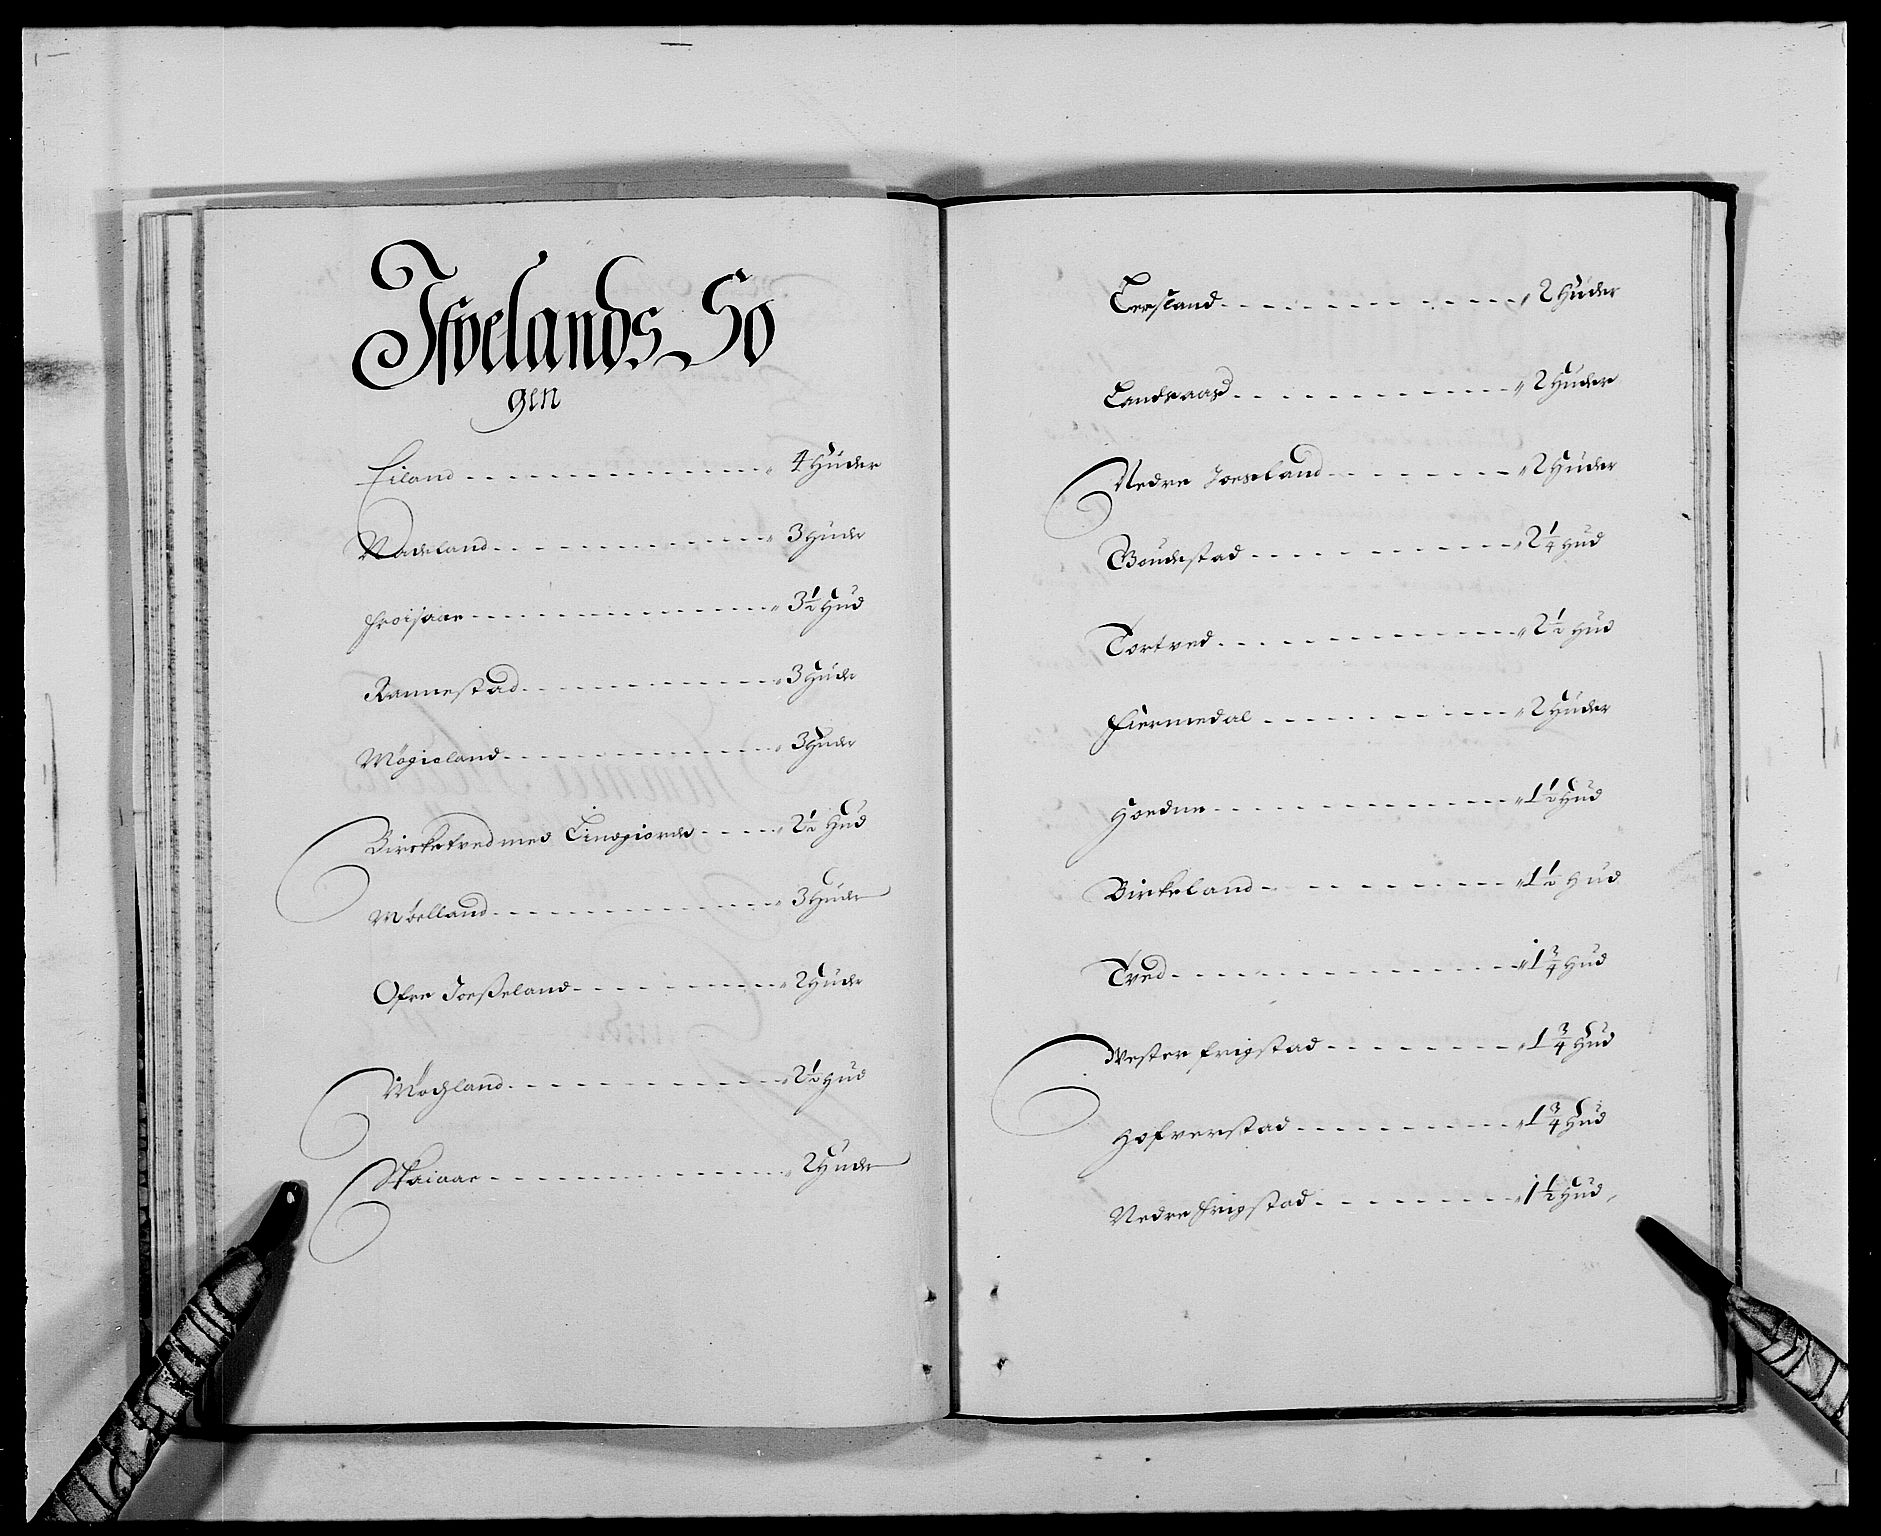 Ifvelands So
gen
Eiland - - - - - - - - 4 Huder
Vadeland - - - - - - - - 3 Huder
Froisaae - - - - - - - - 3½ Hud
Rannestad - - - - - - - - 3 Huder
Møgieland - - - - - - - - 3 Huder
Birketved med - - - - 2½ Hud
Møelland - - - - - - - - 3 Huder
Ofre Ioeßeland - - - - - - - - 2 Huder
Mochland - - - - - - - - 2½ Hud
Skaiaae - - - - - - - - 2 Huder
Leersland - - - - - - - - 2 Huder
Landsaas - - - - - - - - 2 Huder
Nedre Ioesland - - - - - - - - 2 Huder
Boudestad - - - - - - - - 2¼ Hud
Tortved - - - - - - - - 2½ Hud
Fiermedal - - - - - - - - 2 Huder
Hoedne - - - - - - - - 1½ Hud
Birkeland - - - - - - - - 1½ Hud
Tved - - - - - - - - 1¾ Hud
Wester Frigstad - - - - - - - - 1¾ Hud
Hofverstad - - - - - - - - 1¾ Hud
Nedre Frigstad - - - - - - - - 1½ Hud